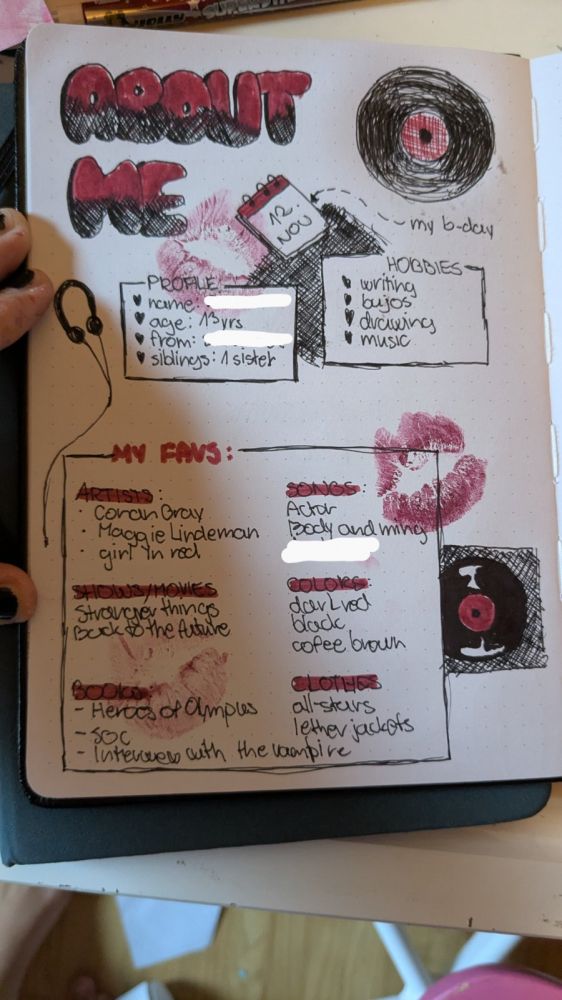 ABOUT
ME
12.
NOV
my b-day
PROFILE
name:
age: 13 yrs
from:
siblings: 1 sister
HOBBIES
writing
bujos
drawing
music
MY FAVS:
ARTISTS:
· Conan Gray
· Maggie Lindeman
· girl in red
SONGS:
Actor
Body and ming
SHOWS/MOVIES
Stranger things
Back to the future
COLORS
dark red
black
cofee brown
BOOKS:
- Heroes of Olympus
- SOC
- Interview with the vampire
CLOTHES
all-stars
lether jackets